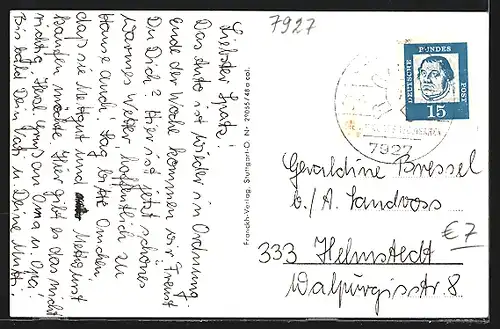 7927
Liebster Spatz!
Das Auto ist wieder in Ordnung.
Ende der Woche kommen wir. Freust
Du Dich? Hier ist jetzt schönes
warmes Wetter, hoffentlich zu
Hause auch. Sag bitte Omchen,
daß sie Mettgut und Mettwurst
kaufen möchte. Hier gibt es das nicht
richtig. Herzl. Gruß an Oma u. Opa,
Bis bald Dein Vati u. Deine Mutti.
Franckh-Verlag, Stuttgart-O · Nr. 29055/48 b col.
DEUTSCHE
BUNDES
POST
15
7927
Geraldine Bressel
b./A. Sandvoss
€ 7
333 Helmstedt
Walpurgisstr 8